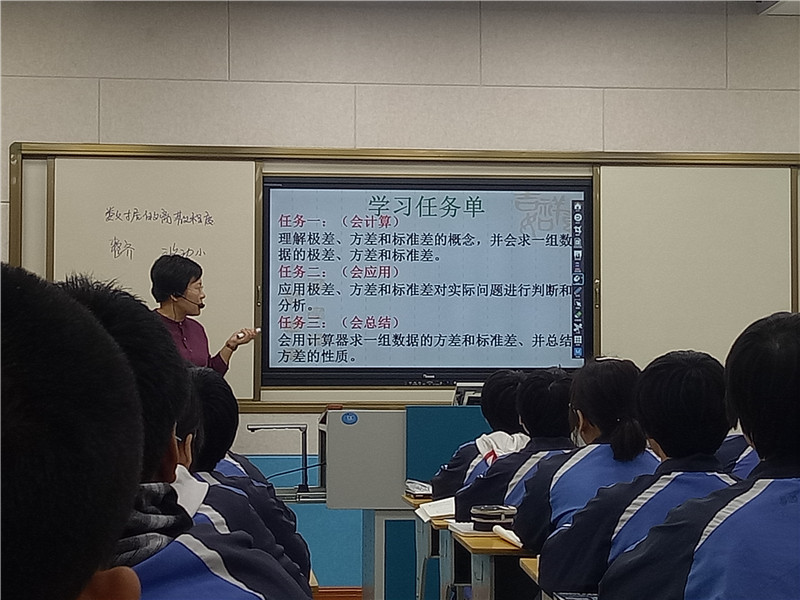 数据的离散程度
整齐 波动小
学习任务单
任务一：（会计算）
理解极差、方差和标准差的概念，并会求一组数
据的极差、方差和标准差。
任务二：（会应用）
应用极差、方差和标准差对实际问题进行判断和
分析。
任务三：（会总结）
会用计算器求一组数据的方差和标准差、并总结
方差的性质。